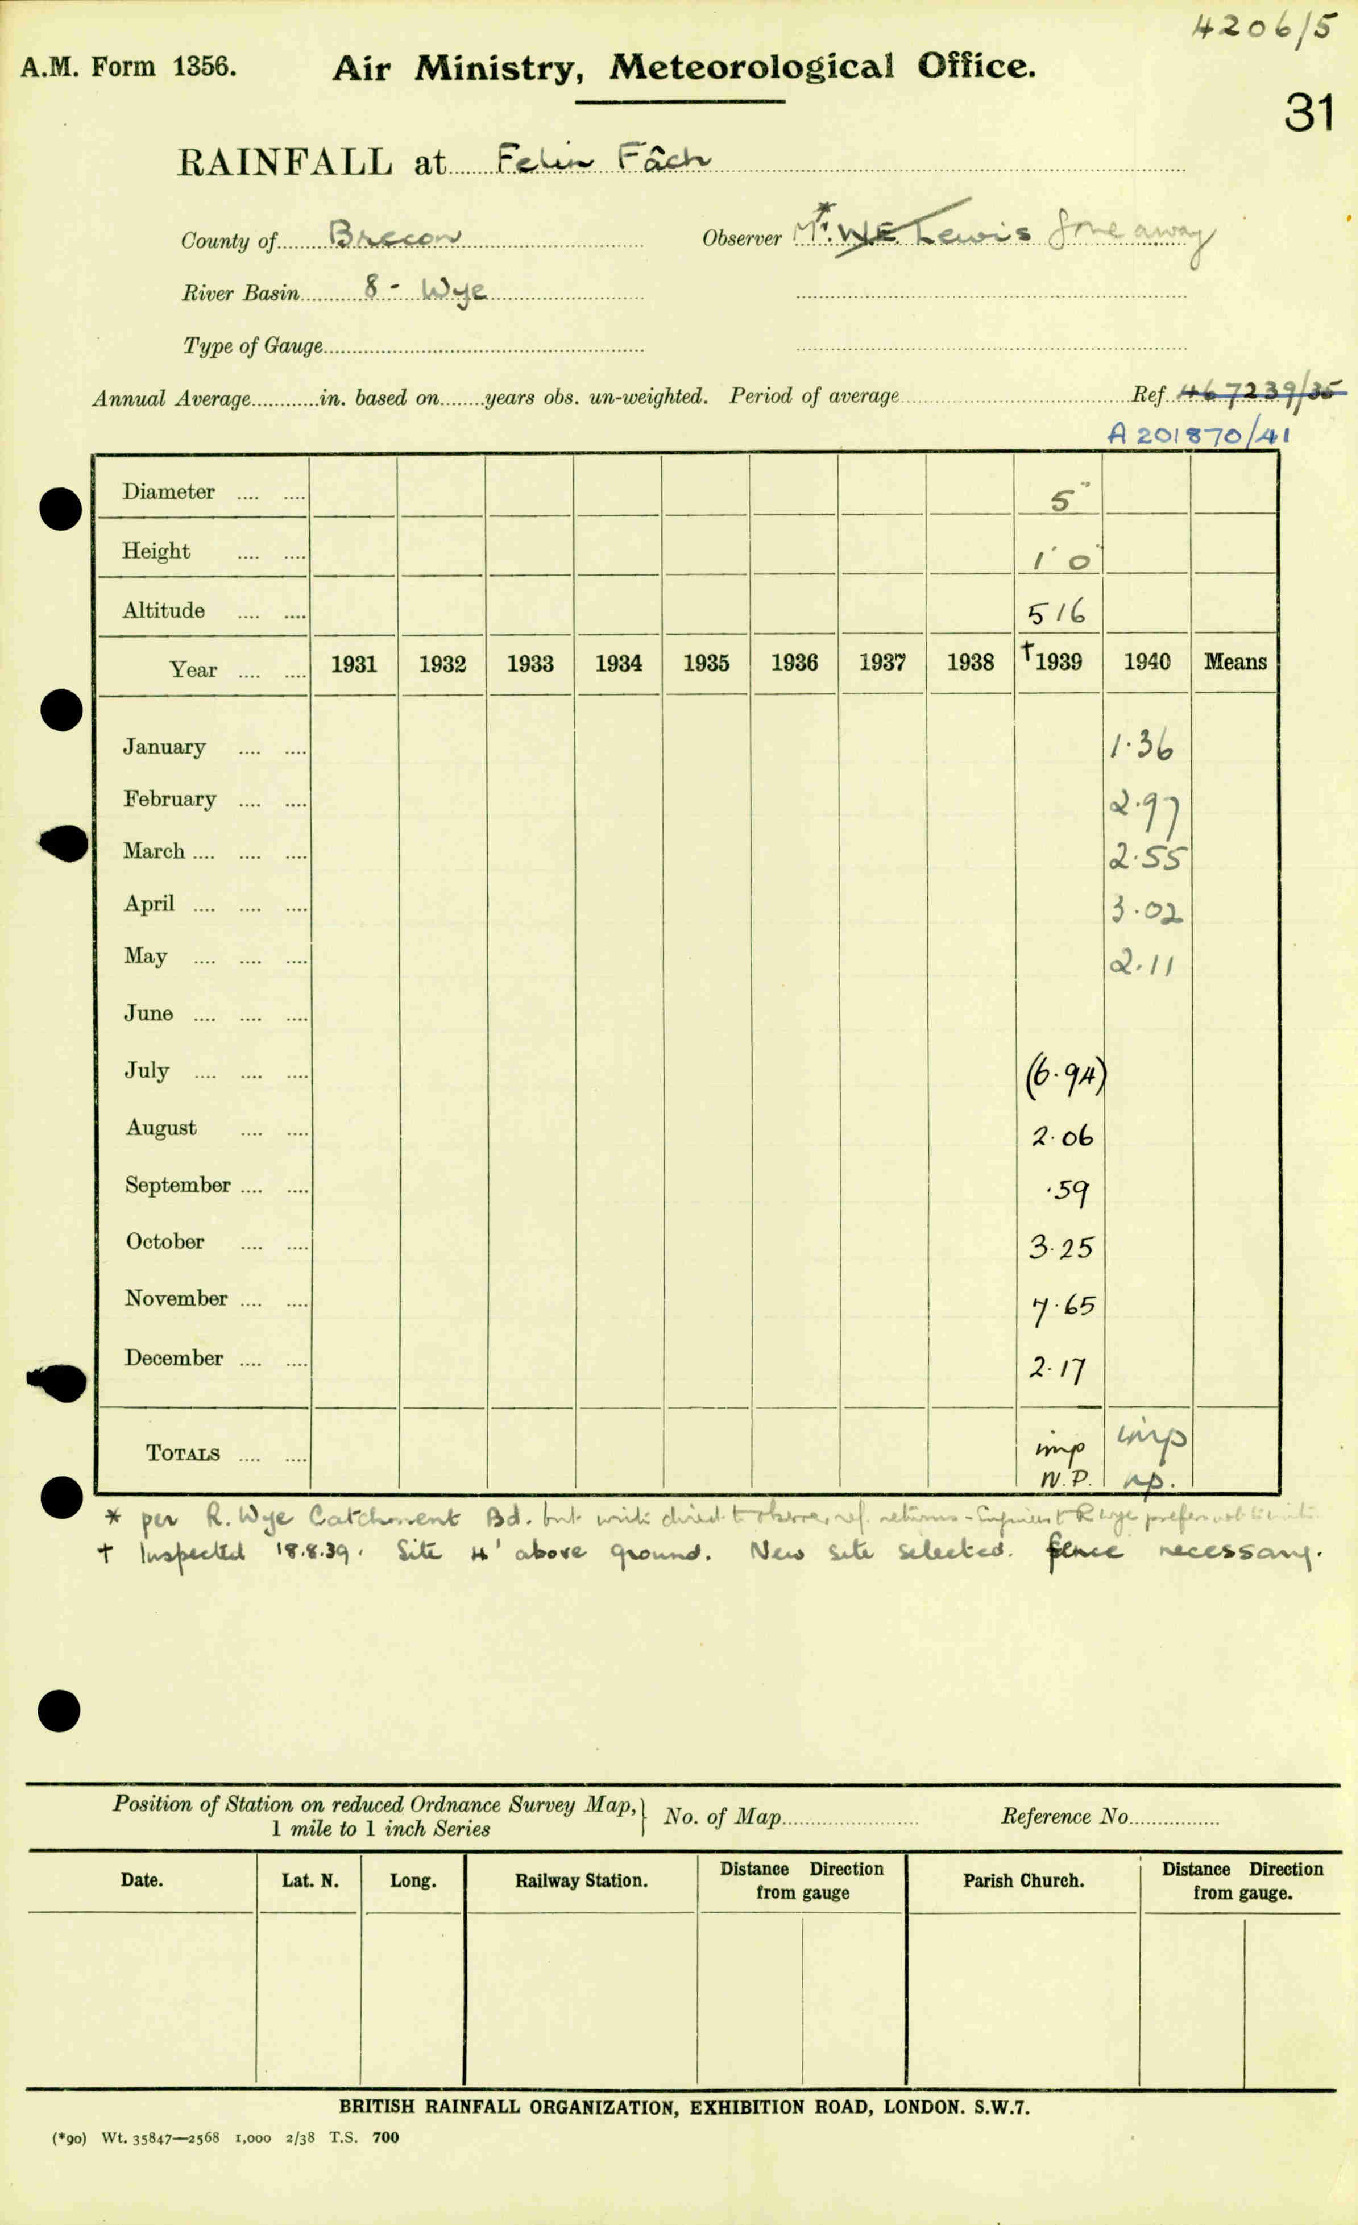 4206/5
A.M. Form 1356. Air Ministry, Meteorological Office.
31
RAINFALL at Felin Fâch
County of Brecon Observer * Mr. W.E. Lewis gone away
River Basin 8 - Wye
Type of Gauge
Annual Average in. based on years obs. un-weighted. Period of average Ref. 467239/35
A 201870/41
Diameter .... .... 5"
Height .... .... 1' 0"
Altitude .... .... 516
Year .... .... 1931 1932 1933 1934 1935 1936 1937 1938 †1939 1940 Means
January .... .... 1.36
February .... .... 2.97
March .... .... .... 2.55
April .... .... .... 3.02
May .... .... .... 2.11
June .... .... ....
July .... .... .... (6.94)
August .... .... 2.06
September .... .... .59
October .... .... 3.25
November .... .... 7.65
December .... .... 2.17
TOTALS .... .... imp imp
N.P. n.p.
* per R. Wye Catchment Bd. but write direct to observer ref. returns - Engineer R Wye prefers not to
† Inspected 18.8.39. Site 4' above ground. New site selected. fence necessary.
Position of Station on reduced Ordnance Survey Map, } No. of Map Reference No.
1 mile to 1 inch Series
Date. Lat. N. Long. Railway Station. Distance Direction from gauge Parish Church. Distance Direction from gauge.
BRITISH RAINFALL ORGANIZATION, EXHIBITION ROAD, LONDON. S.W.7.
(*90) Wt. 35847—2568 1,000 2/38 T.S. 700